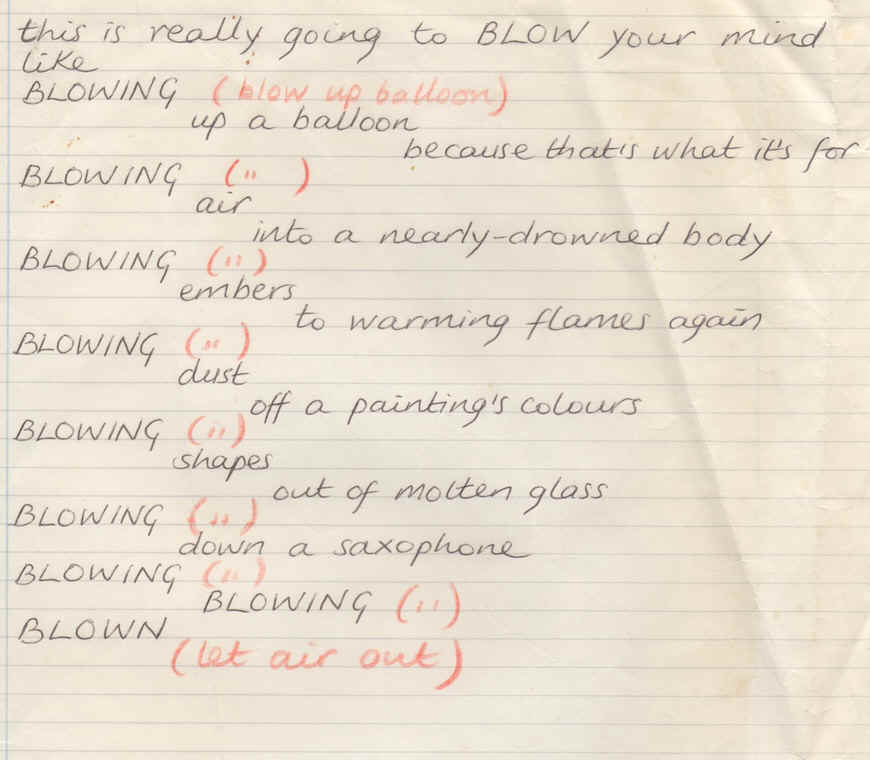 this is really going to BLOW your mind
like
BLOWING (blow up balloon)
up a balloon
because that's what it's for
BLOWING (" )
air
into a nearly-drowned body
BLOWING (")
embers
to warming flames again
BLOWING (")
dust
off a painting's colours
BLOWING (")
shapes
out of molten glass
BLOWING (")
down a saxophone
BLOWING (")
BLOWING (")
BLOWN
(let air out)